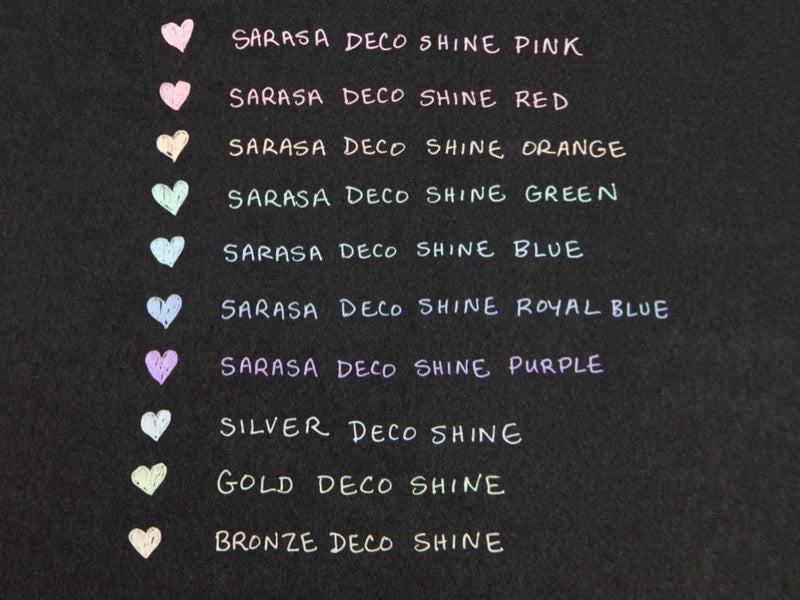 SARASA DECO SHINE PINK
SARASA DECO SHINE RED
SARASA DECO SHINE ORANGE
SARASA DECO SHINE GREEN
SARASA DECO SHINE BLUE
SARASA DECO SHINE ROYAL BLUE
SARASA DECO SHINE PURPLE
SILVER DECO SHINE
GOLD DECO SHINE
BRONZE DECO SHINE